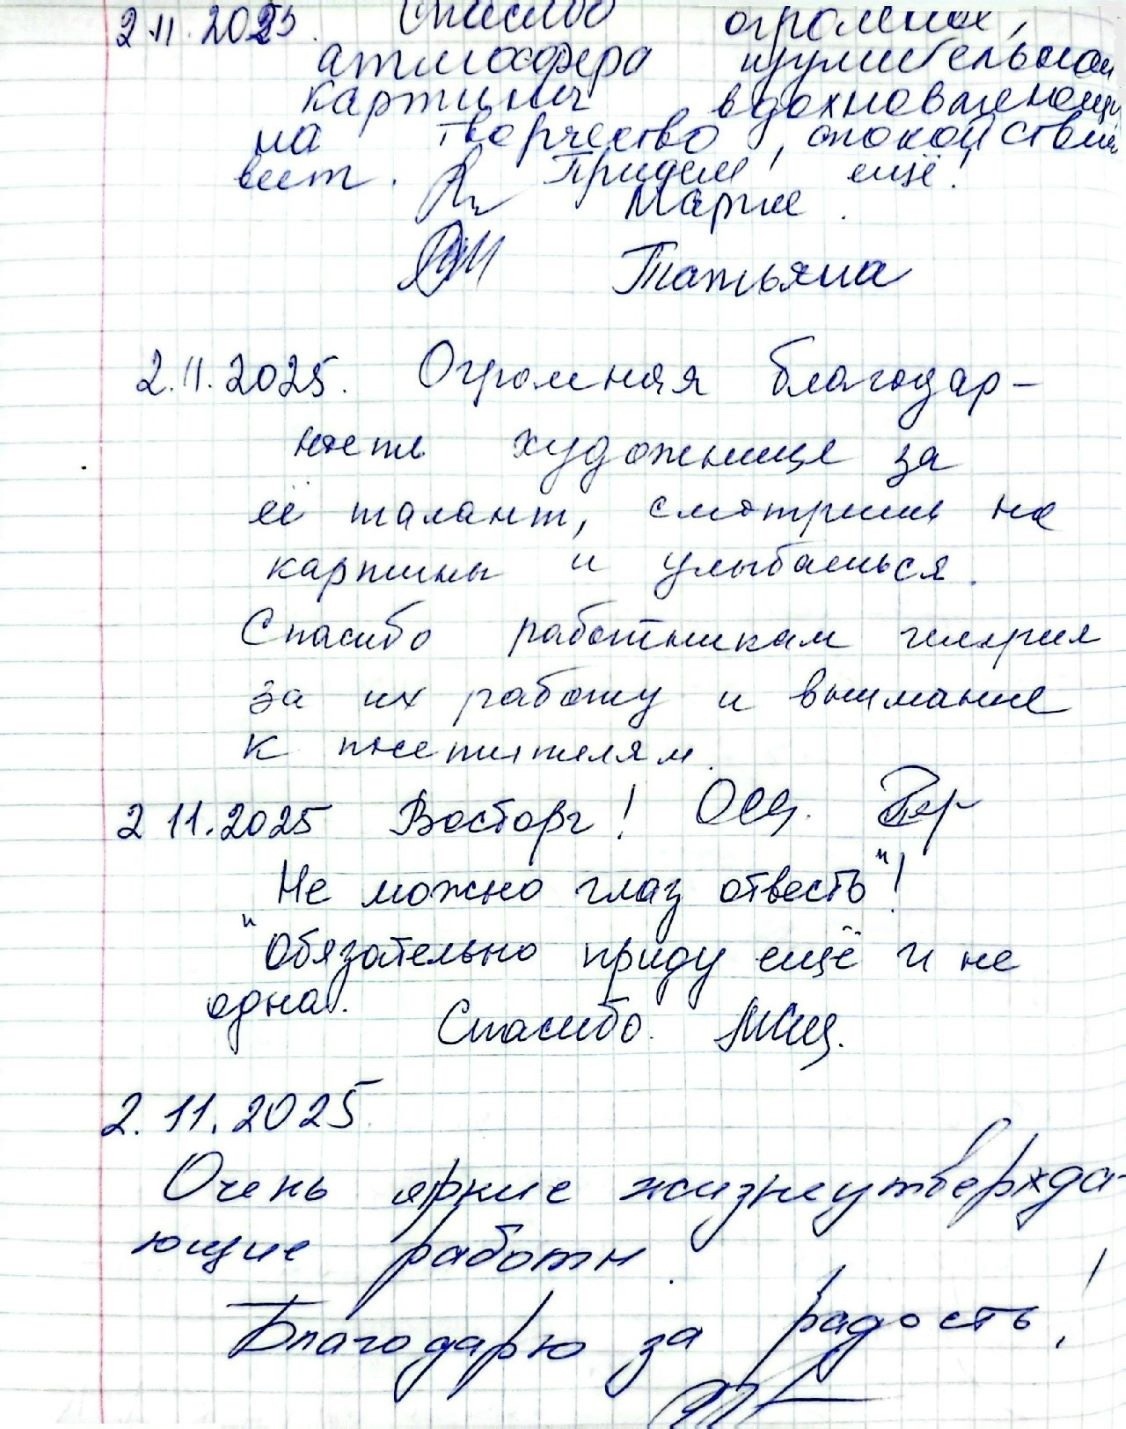 2.11.2025. Спасибо огромное,
атмосфера изумительная
картины вдохновляющие
на творчество, спокойствие
веет. Придем ещё!
Мария.
Татьяна
2.11.2025. Огромная благодар-
ность художнице за
её талант, смотришь на
картины и улыбаешься.
Спасибо работникам галереи
за их работу и внимание
к посетителям.
2 11.2025 Восторг!
"Не можно глаз отвесть"!
Обязательно приду ещё и не
одна. Спасибо.
2.11.2025
Очень яркие жизнеутвержда-
ющие работы.
Благодарю за радость!